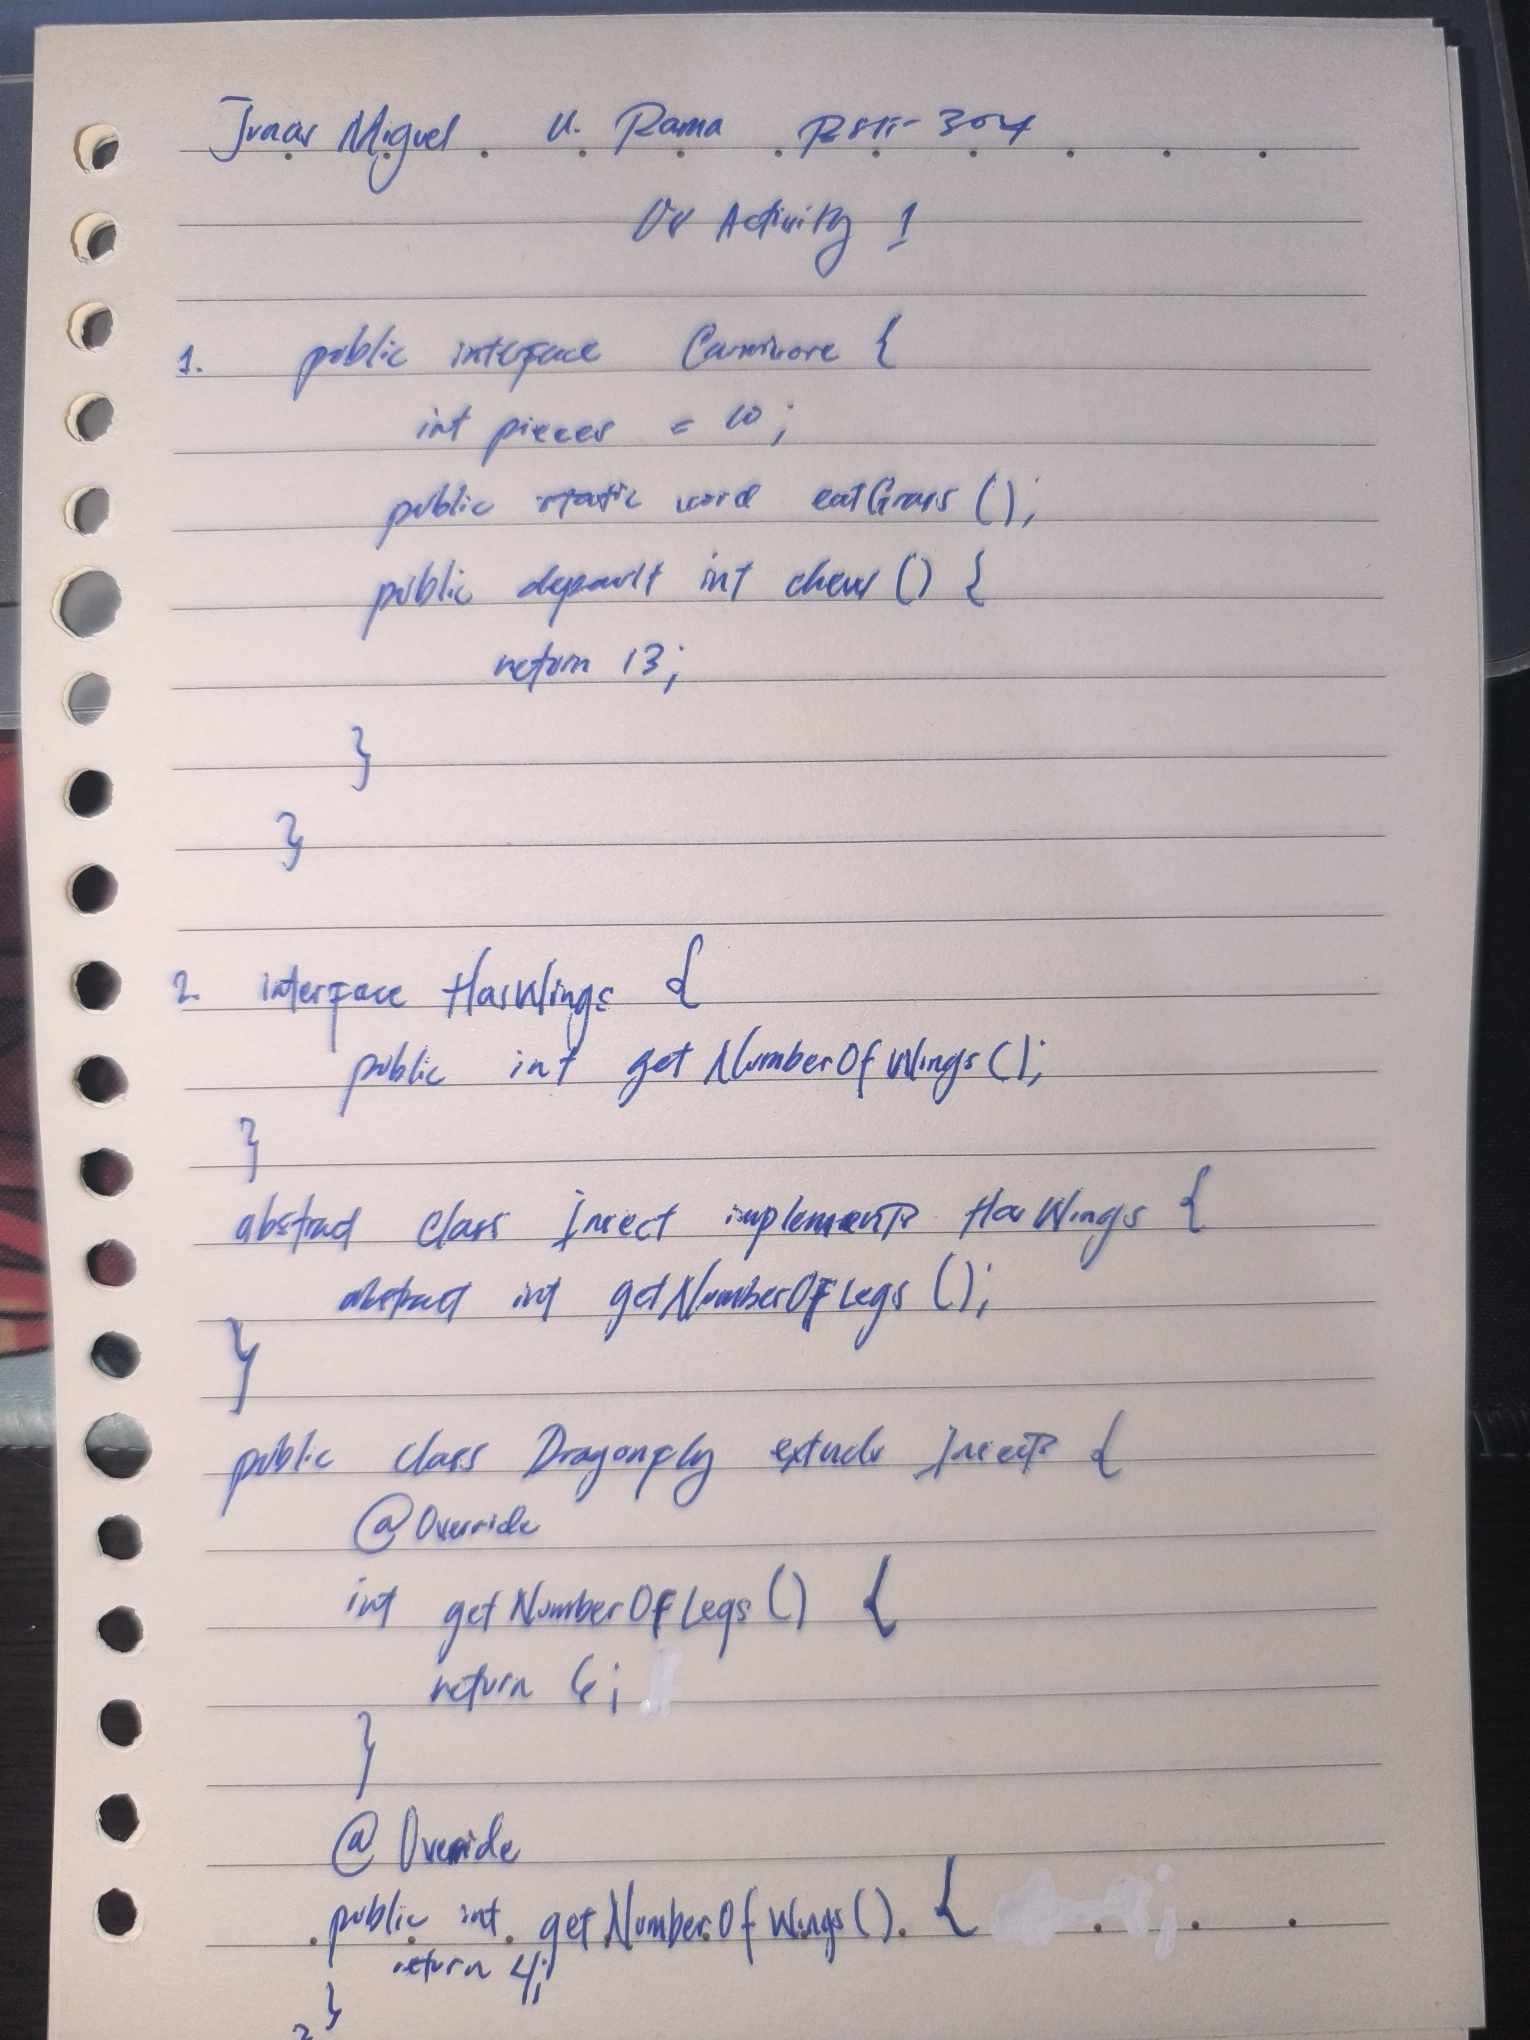 Miguel U. Rama 304
Activity 1
1. public interface Carnivore {
int pieces = 10;
public static void eatGrass ();
public default int chew () {
return 13;
}
}
2. interface HasWings {
public int getNumberOfWings ();
}
abstract class Insect implements HasWings {
abstract int getNumberOfLegs ();
}
public class Dragonfly extends Insect {
@Override
int getNumberOfLegs () {
return 6;
}
@Override
public int getNumberOfWings () {
return 4;
}
}